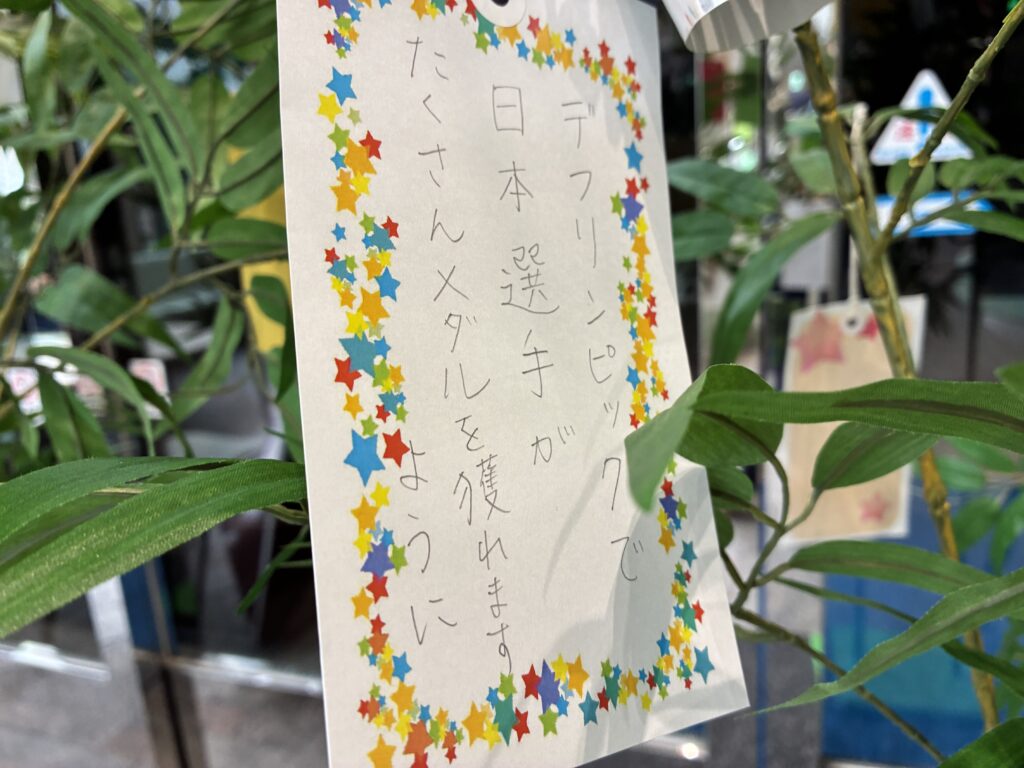 デフリンピックで
日本選手が
たくさんメダルを獲れます
ように